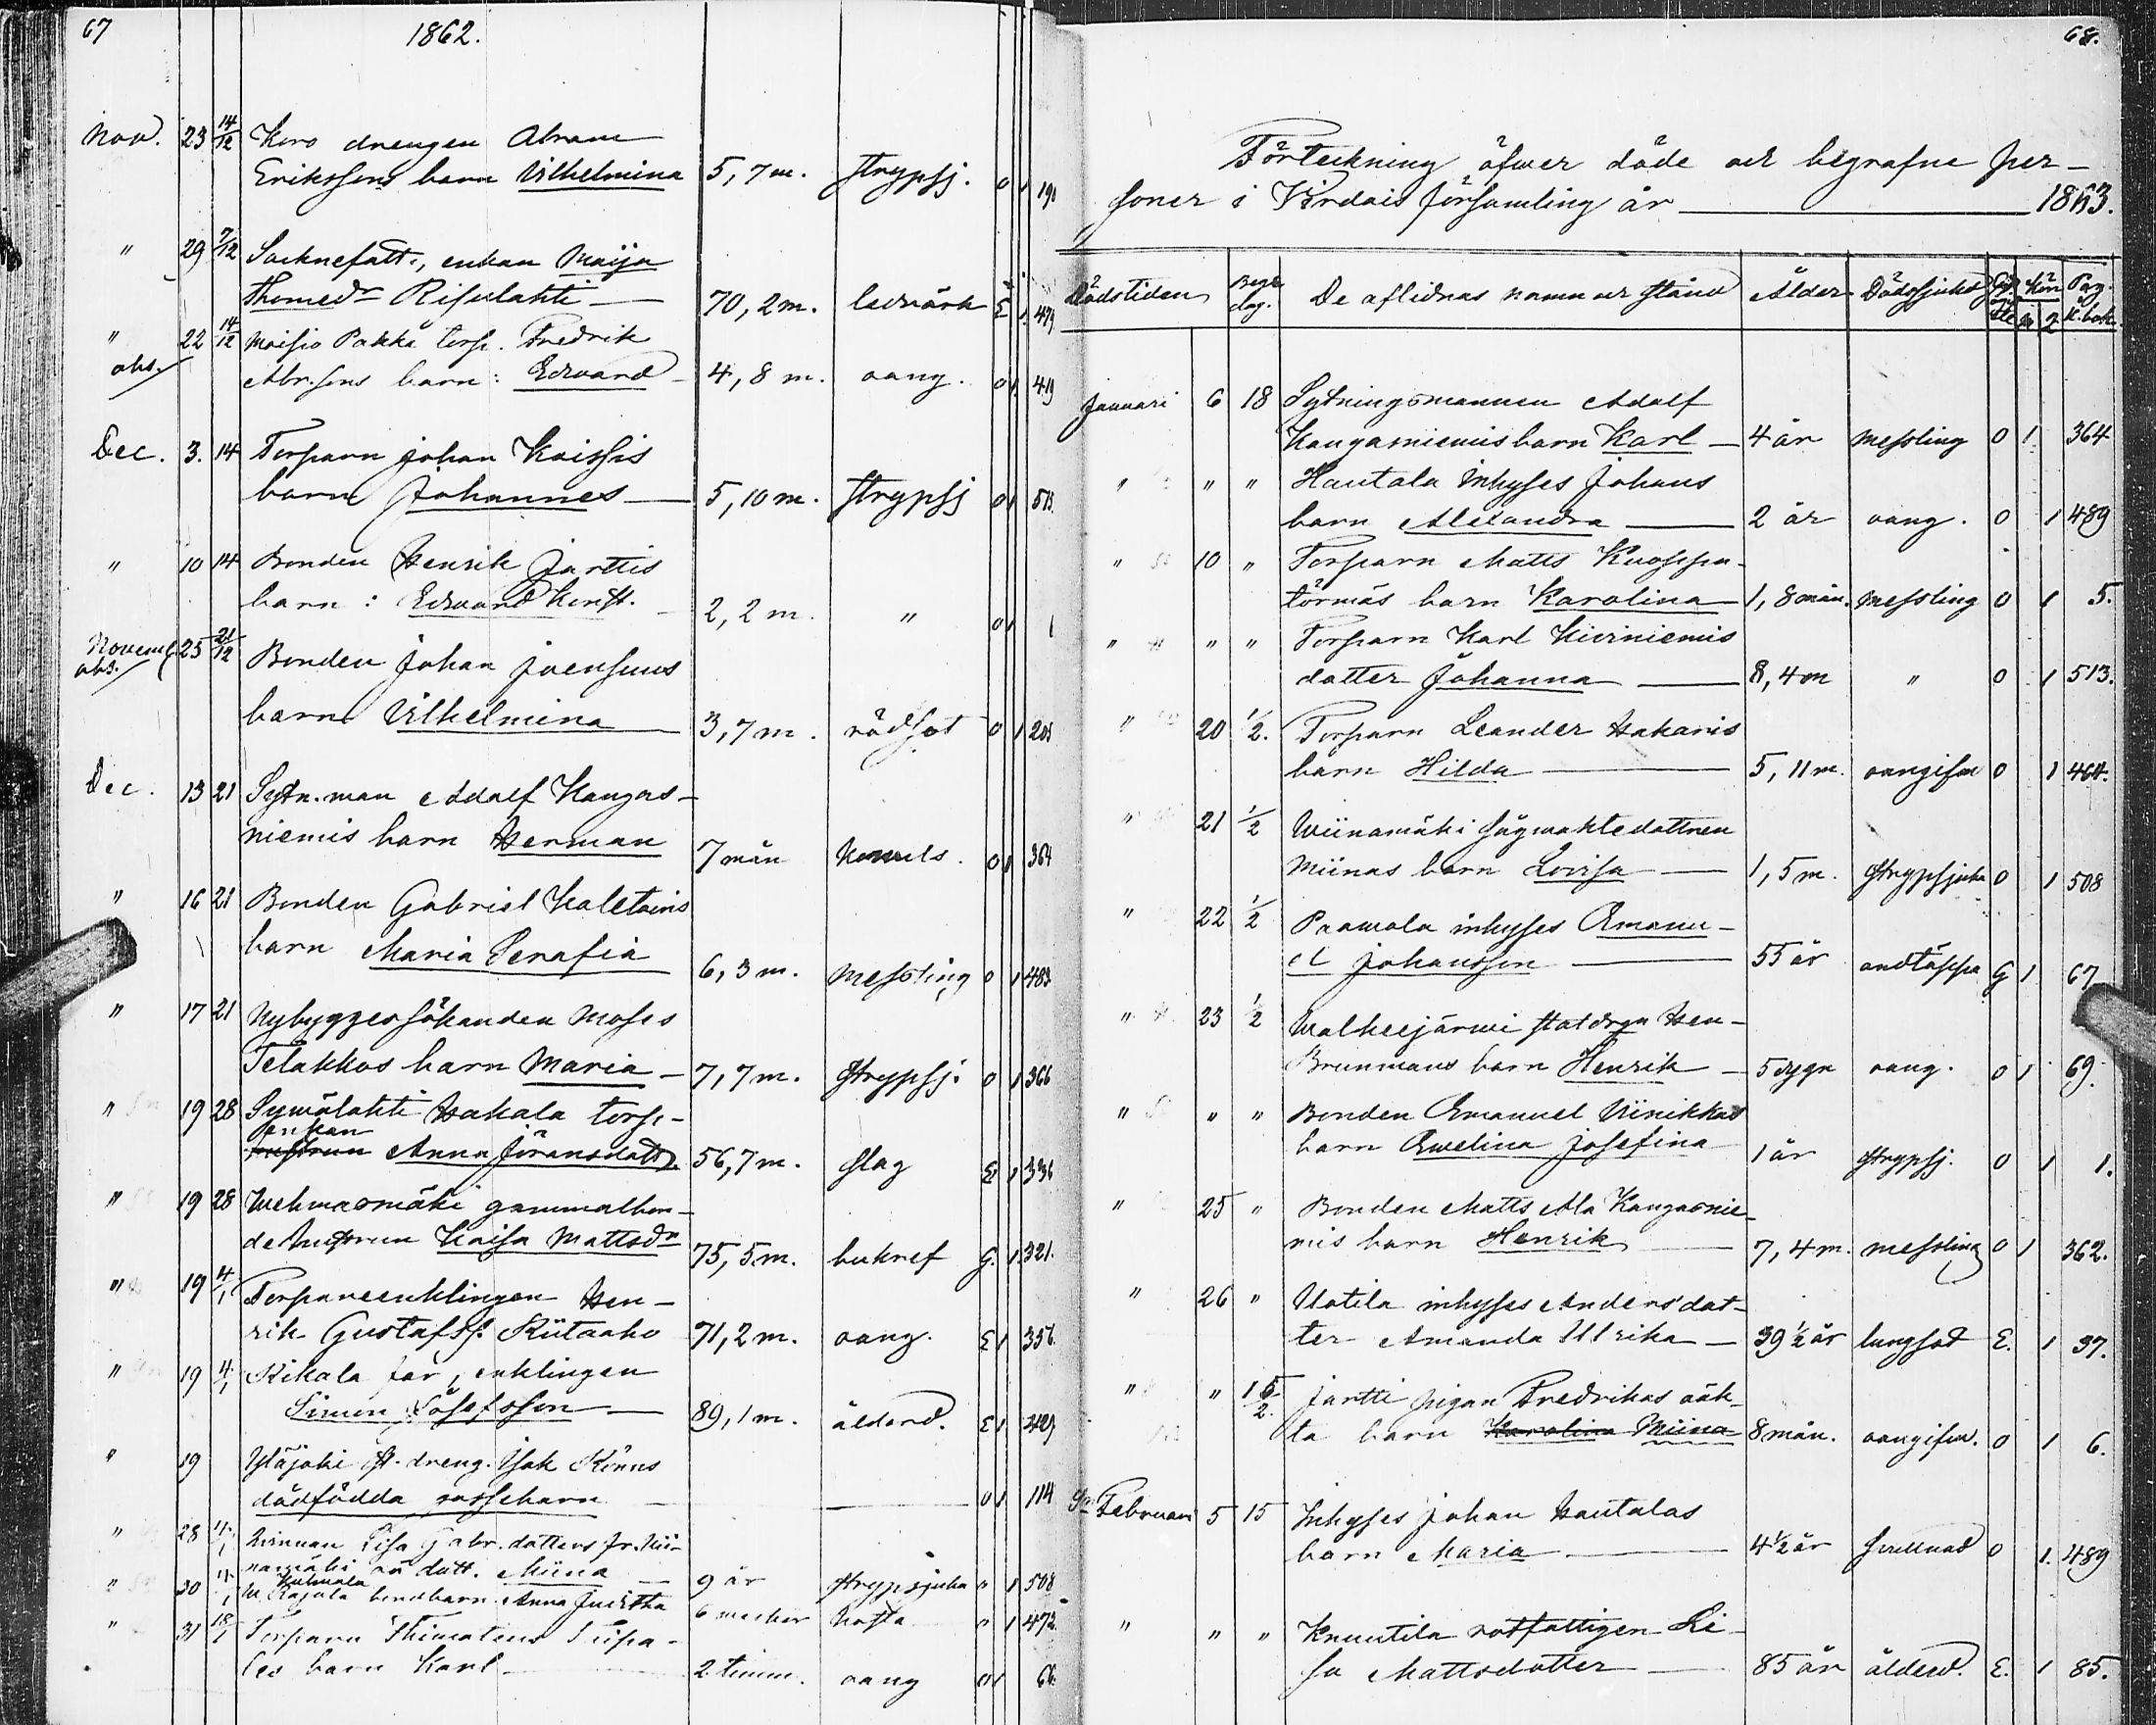 67
1862.
Nov. 23 14/12 Koro drengen Abram
Erikssons barn Vilhelmina 5,7 m. strypsj. o 1 190
" 29 7/12 Socknefatt., enkan Maija
Thomedr Risulahti 70,2 m. ledvärk E 1 479
" 22 14/12 Moisio Pakka torp. Fredrik
obs. Abr.sons barn: Edvard 4,8 m. oang. o 1 419
Dec. 3. 14 Torparn Johan Koissis
barn Johannes 5,10 m. strypsj o 1 513
" 10 14 Bonden Henrik Jarttis
barn: Edvard Konst. 2,2 m. " o 1 1
Novemb 25 21/12 Bonden Johan Joensuus
obs.
barn Vilhelmina 3,7 m. rödsot o 1 205
Dec. 13 21 Sytn.man Adolf Kangas-
niemis barn Herman 7 mån o 1 364
" 16 21 Bonden Gabriel Kaletoins
barn Maria Serafia 6,3 m. messling o 1 483
" 17 21 Nybyggessökanden Moses
Telakkos barn Maria 7,7 m. strypsj. o 1 366
" 19 28 Sywälahti Hakala torp-
enkan
hustrun Anna Jöransdotr 56,7 m. slag E 1 336
" 19 28 Wehmasmäki gammalbon-
dehustrun Kaisa Mattsdr 75,5 m. bukref G. 1 321.
" 19 4/1 Torpareenklingen Hen-
rik Gustafss. Riitaaho 71,2 m. oang. E 1 356
" 19 4/1 Kikala far, enklingen
Simon Josefsson 89,1 m. ålderd. E 1 429
" 19 Yläjoki st. dreng. Isak Rönns
dödfödda gossebarn o 1 114
" 28 4/1 qvinnan Lisa Gabr. dotters fr. Wii-
namäki oä dott. Miina 9 år strypsjuka " 1 508
" 30 4/1 bondbarn Anna Justha 6 weckor hosta " 1 472
" 31 18/1 Torparn Thimoteus
barn Karl 2 timm. oang o 1 66
68.
Förteckning öfwer döde och begrafne per-
soner i Virdois församling år 1863.
Dödstiden Begr. dag. De aflidnas namn och stånd Ålder Dödssjukd Kön Pag. K. bok.
Januari 6 18 Sytningsmannen Adolf
Kangasniemis barn Karl 4 år messling O 1 364
" " " Hautala inhyses Johans
barn Alexandra 2 år oang. O 1 489
" 10 " Torparn Matts Kuoppa-
törmäs barn Karolina 1,8 mån. messling O 1 5.
" " " Torparn Karl Kiviniemis
dotter Johanna 8,4 m " O 1 513.
" 20 1/2. Torparn Leander Hakanis
barn Hilda 5,11 m. oangifven O 1 464.
" 21 1/2 Wiinamäki sågwaktedottren
Miinas barn Lovisa 1,5 m. strypsjuka O 1 508
" 22 1/2 Paawola inhyses Emanu-
el Johansson 55 år andtäppa G 1 67
" 23 1/2 Walkeejärwi statdrgn Hen-
Brunmans barn Henrik 5 dygn oang. o 1 69.
" " " Bonden Emanuel Uinikkas
barn Ewelina Josefina 1 år strypsj. O 1 1.
" 25 " Bonden Matts Ala Kangasnie-
mis barn Henrik 7,4 m. messling O 1 362.
" 26 " Uotila inhyses Anders' dot-
ter Amanda Ulrika 39 1/2 år lungsot E. 1 37.
" " 15/2. Jartti pigan Fredrikas oäk-
ta barn Karolina Miina 8 mån. oangifven. O 1 6.
Februari 5 15 Inhyses Johan Hautalas
barn Maria 4 1/2 år swullnad O 1. 489
" " " Knuutila rotfattigen Li-
sa Mattsdotter 85 år ålderd. E. 1 85.